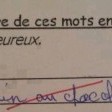 e de ces mots en
eureux.
un au